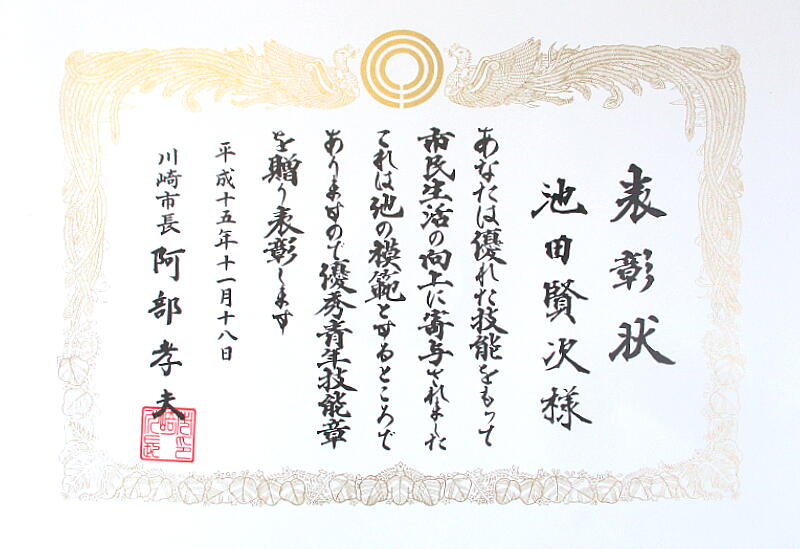 表彰状
池田賢次様
あなたは優れた技能をもって
市民生活の向上に寄与されました
これは他の模範とするところで
ありますので優秀青年技能章
を贈り表彰します
平成十五年十一月十八日
川崎市長 阿部孝夫